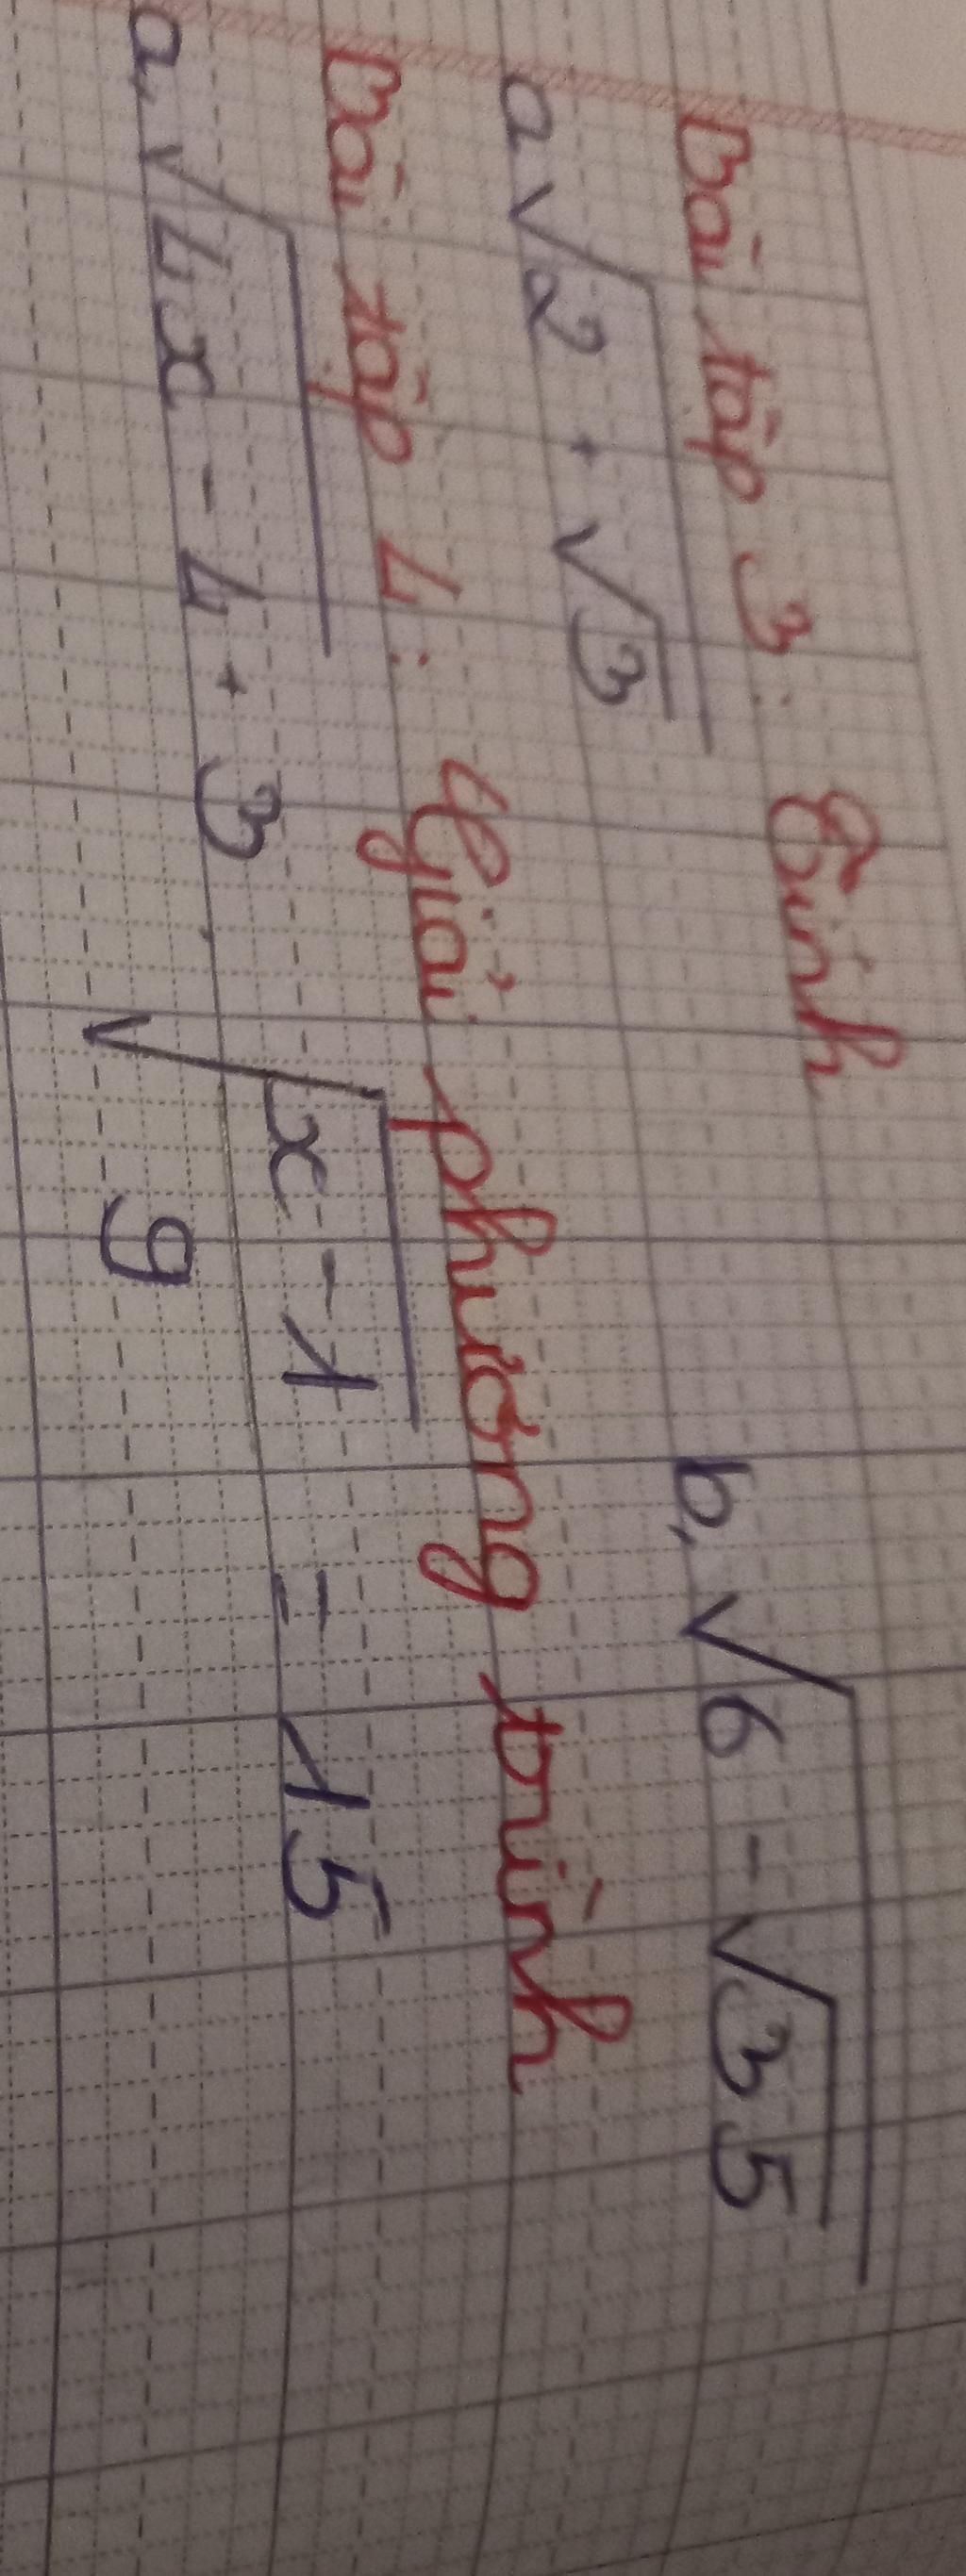 Bài tập 3: Tính
a √(2 + √3) b, √(6 - √35)
Bài tập 4: Giải phương trình
a, √(4x - 4) + 3 √((x - 1)/9) = 15